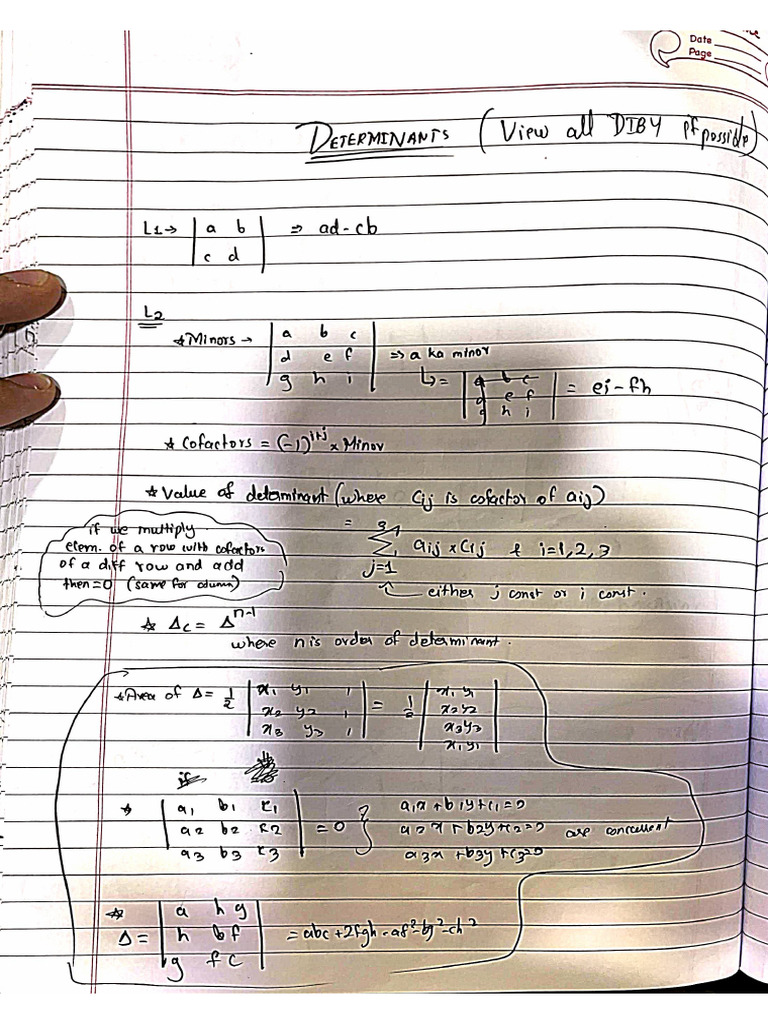 Date
Page
DETERMINANTS (View all DIBY if possible)
L1→ | a b | ⇒ ad-cb
| c d |
L2
* Minors → | a b c |
| d e f | ⇒ a ka minor
| g h i | ↳ = | a b c |
| d e f | = ei-fh
| g h i |
* Cofactors = (-1)^{i+j} × Minor
* Value of determinant (where Cij is cofactor of aij)
= 3 Σ j=1 aij × Cij & i=1,2,3
either j const or i const.
if we multiply
elem. of a row with cofactors
of a diff row and add
then =0 (same for column)
* Δc = Δ^{n-1}
where n is order of determinant.
* Area of Δ = 1/2 | x1 y1 1 | = 1/2 | x1 y1 |
| x2 y2 1 | | x2 y2 |
| x3 y3 1 | | x3 y3 |
| x1 y1 |
if
* | a1 b1 c1 | a1x+b1y+c1=0
| a2 b2 c2 | =0 } a2x+b2y+c2=0 are concurrent
| a3 b3 c3 | a3x+b3y+c3=0
* | a h g |
Δ = | h b f | = abc+2fgh-af²-bg²-ch²
| g f c |